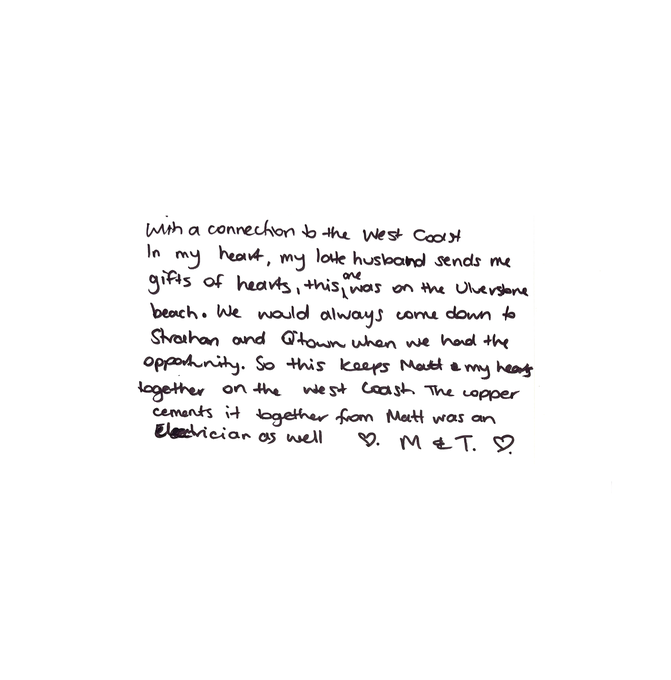 With a connection to the West Coast
In my heart, my late husband sends me
gifts of hearts, this one was on the Ulverstone
beach. We would always come down to
Strahan and Q'town when we had the
opportunity. So this keeps Matt & my heart
together on the West Coast. The copper
cements it together from Matt was an
Electrician as well ♡. M & T. ♡.